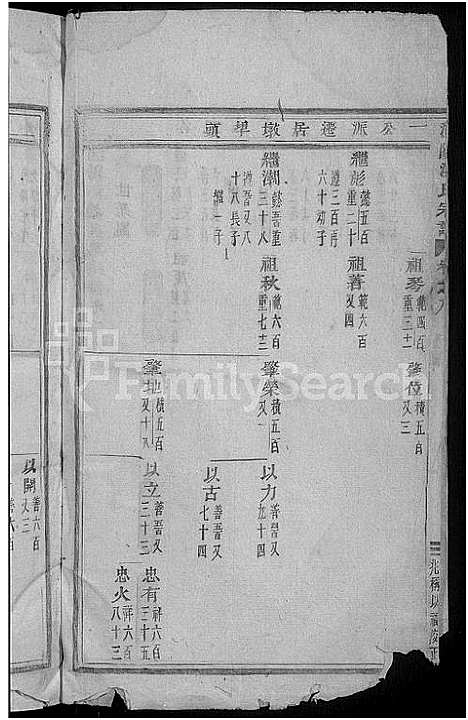 一公派遷居墩旱頭
祖琴 範四百
重三十一
肇位 積五百
又三
繼彪 懿五百
重二十
遵三百肆
六十初子
祖蓍 範六百
又四
繼潮 懿吾重
三十八
又
十八長子
繼一子
祖秋 範六百
重七十三
肇榮 積五百
又一
以力 善吾又
九十四
以古 善吾又
七十四
肇地 積五百
又十八
以立 善吾又
三十三
忠有 祥六百
三十五
忠火 祥六百
八十三
以開 善六百
又三
善六百
FamilySearch